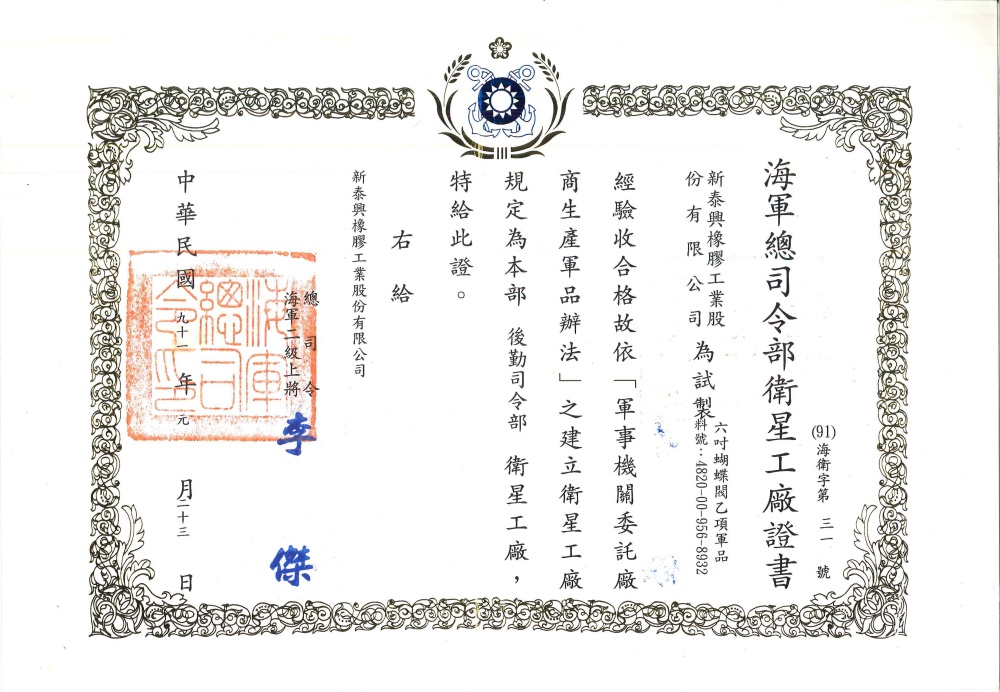 海軍總司令部衛星工廠證書
(91)海衛字第 三一 號
新泰興橡膠工業股份有限公司 為試製 六吋蝴蝶閥乙項軍品 料號：4820-00-956-8932
經驗收合格故依「軍事機關委託廠
商生產軍品辦法」之建立衛星工廠
規定為本部 後勤司令部 衛星工廠，
特給此證。
右給
新泰興橡膠工業股份有限公司
總司令
海軍二級上將
李傑
海軍總司令印
中華民國 九十一 年 元 月 二十三 日